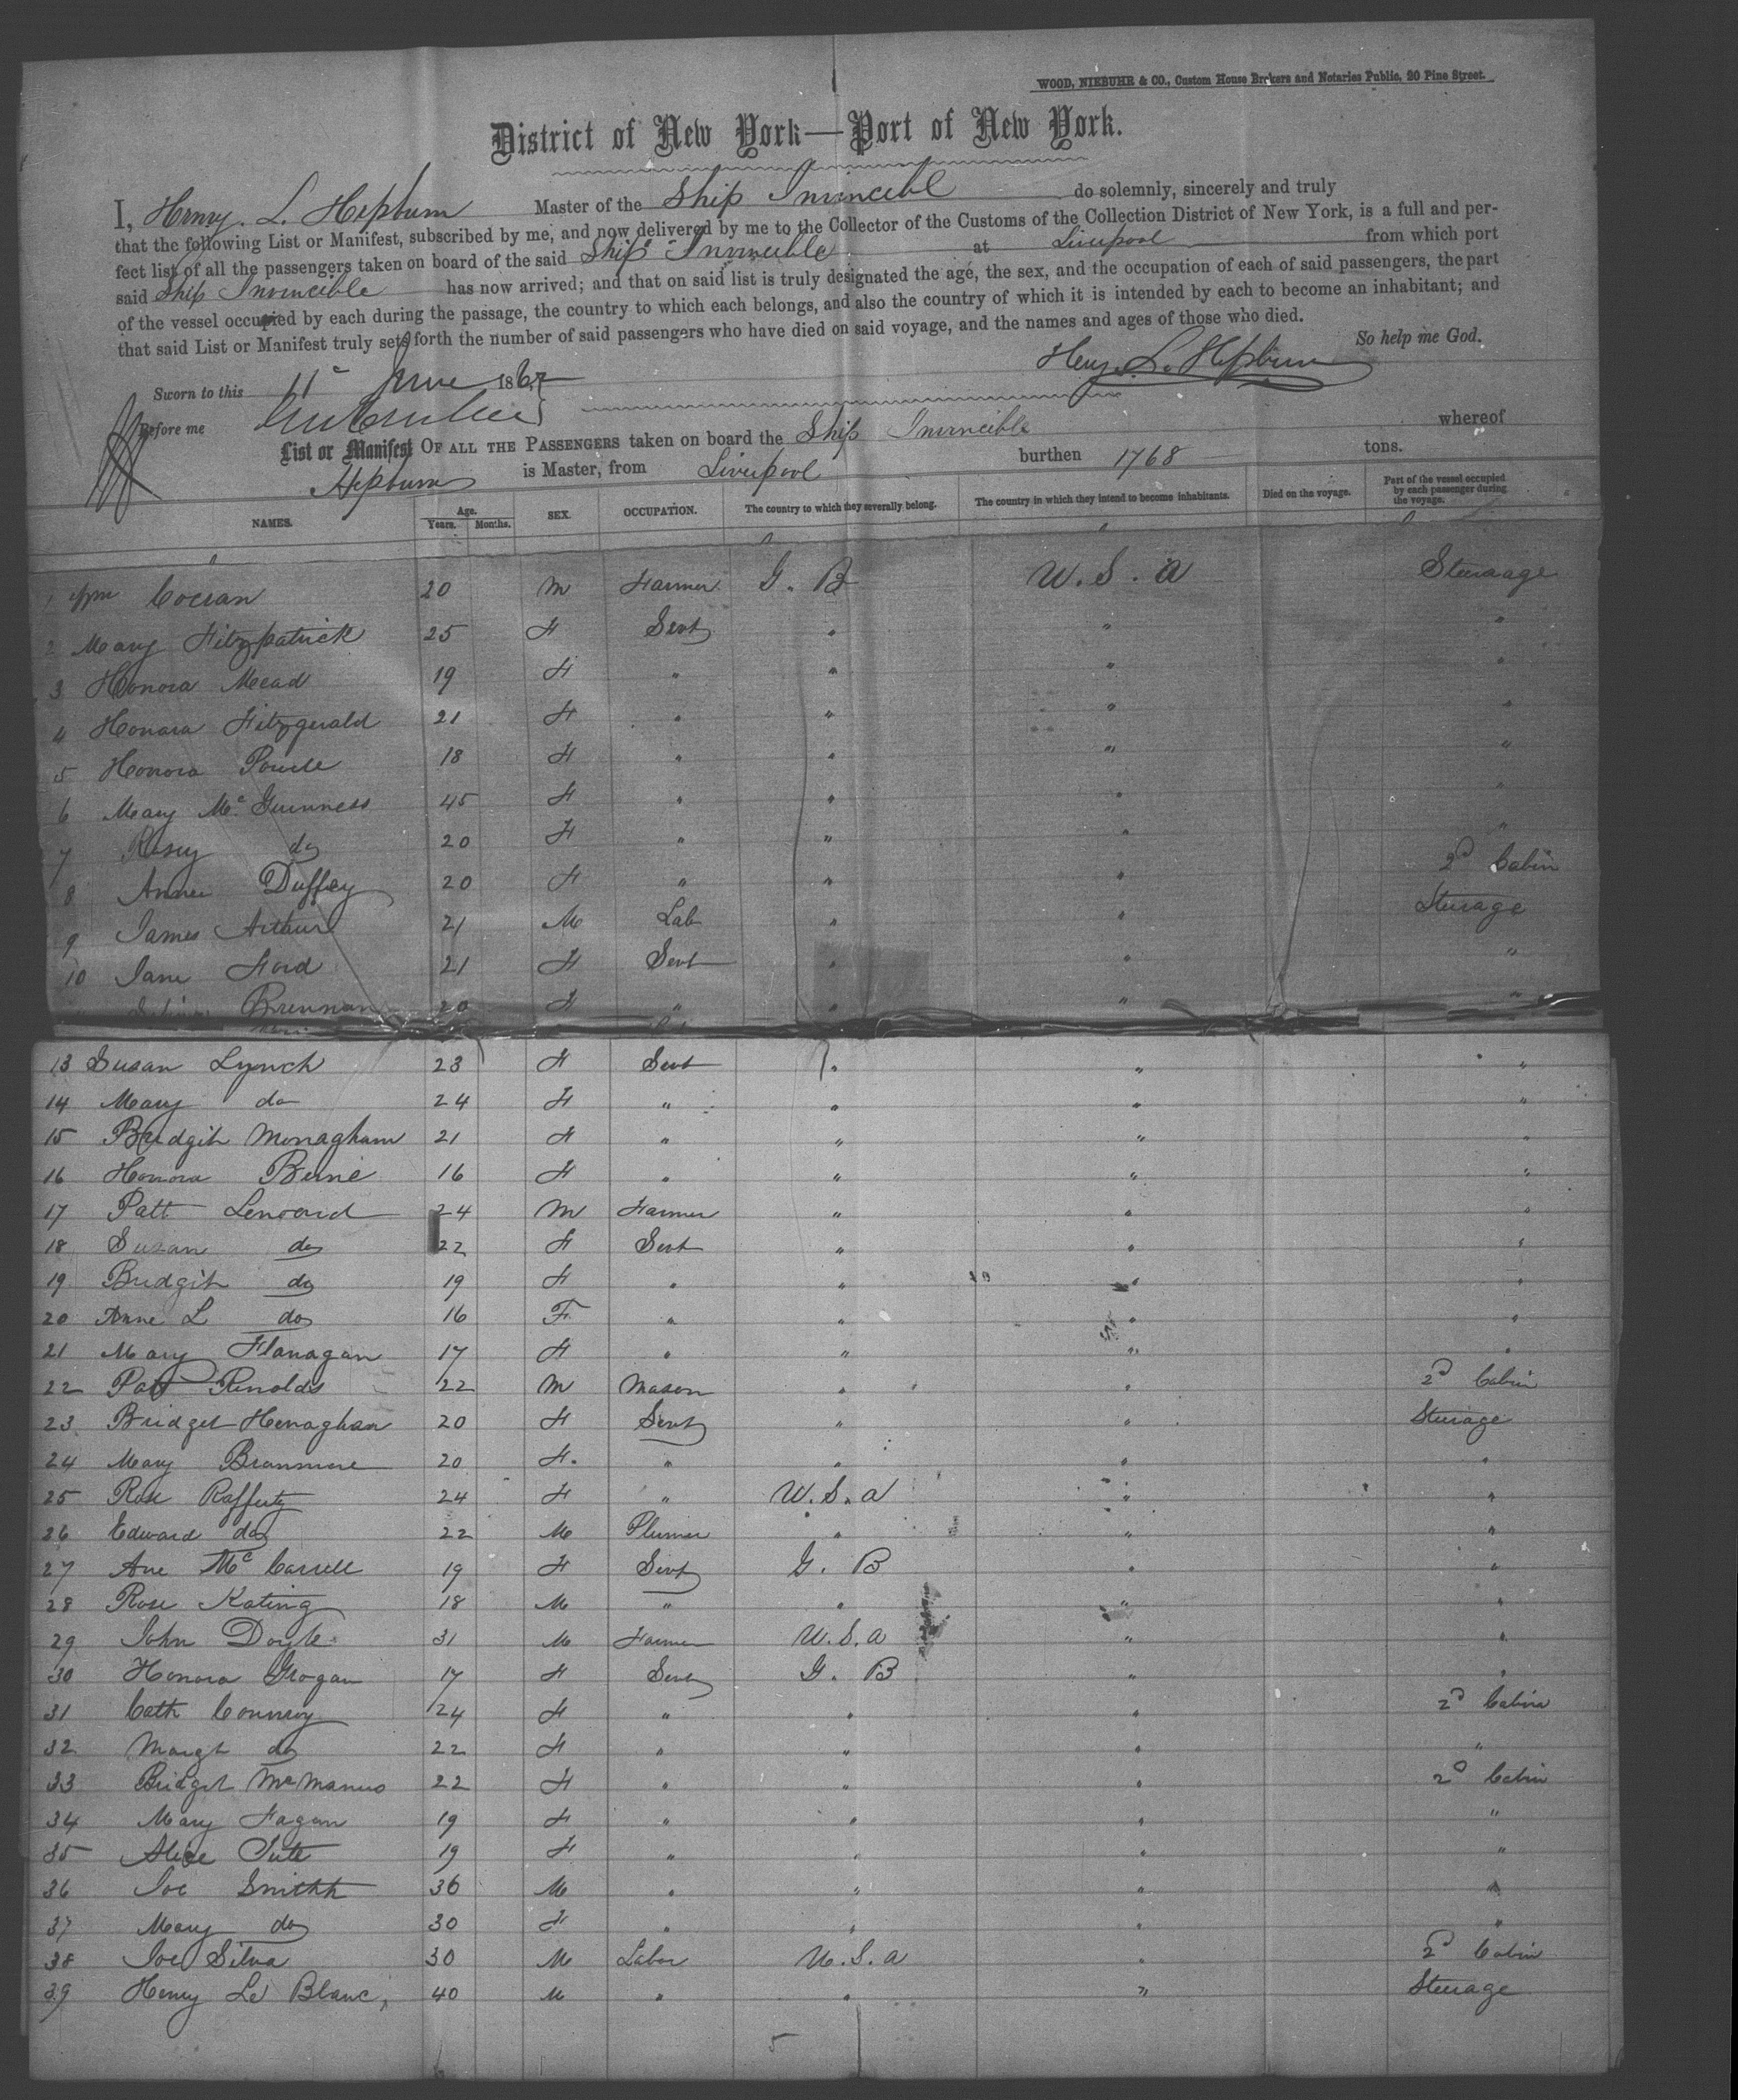 WOOD, NIEBUHR & CO., Custom House Brokers and Notaries Public, 20 Pine Street.
District of New York—Port of New York.
I, Henry. L. Hepburn Master of the Ship Invincibl do solemnly, sincerely and truly
that the following List or Manifest, subscribed by me, and now delivered by me to the Collector of the Customs of the Collection District of New York, is a full and per-
fect list of all the passengers taken on board of the said Ship Invincible at Liverpool from which port
said Ship Invincible has now arrived; and that on said list is truly designated the age, the sex, and the occupation of each of said passengers, the part
of the vessel occupied by each during the passage, the country to which each belongs, and also the country of which it is intended by each to become an inhabitant; and
that said List or Manifest truly sets forth the number of said passengers who have died on said voyage, and the names and ages of those who died.
So help me God.
Henry L. Hepburn
Sworn to this 11" June 1867
Before me
List or Manifest OF ALL THE PASSENGERS taken on board the Ship Invincible whereof
Hepburn is Master, from Liverpool burthen 1768 tons.
NAMES. Age. Years. Months. SEX. OCCUPATION. The country to which they severally belong. The country in which they intend to become inhabitants. Died on the voyage. Part of the vessel occupied by each passenger during the voyage.
1 Wm Cocran 20 M Farmer G. B U. S. a Steraage
2 Mary Fitzpatrick 25 F Servt " " "
3 Honora Mead 19 F " " " "
4 Honara Fitzgerald 21 F " " " "
5 Honora 18 F " " " "
6 Mary Mc Guinness 45 F " " " "
7 Rosey do 20 F " " " "
8 Anne Duffey 20 F " " " 2d Cabin
9 James Arthur 21 M Lab " " Sterage
10 Jane Ford 21 F Servt " " "
Brennan 20 F " " " "
13 Susan Lynch 23 F Servt " " "
14 Mary do 24 F " " " "
15 Bridgit Monagham 21 F " " " "
16 Honora Beine 16 F " " " "
17 Patt Lenoard 24 M Farmer " " "
18 Susan do 22 F Servt " " "
19 Bridgit do 19 F " " " "
20 Anne L do 16 F " " " "
21 Mary Flanagan 17 F " " " "
22 Patt Rinolds 22 M Mason " " 2d Cabin
23 Bridget Henaghan 20 F Servt " " Sterage
24 Mary 20 F. " " " "
25 Rose Rafferty 24 F " U. S. a " "
26 Edward do 22 M Plumer " " "
27 Ane Mc Carrell 19 F Servt G. B " "
28 Rose Kating 18 M " " " "
29 John Doyle 31 M Farmer U. S. a " "
30 Honora Grogan 17 F Servt G. B " "
31 Cath Connroy 24 F " " " 2d Cabin
32 Margt do 22 F " " " "
33 Bridget McManus 22 F " " " 2d Cabin
34 Mary Fagan 19 F " " " "
35 Alice Tute 19 F " " " "
36 Joe Smithh 36 M " " " "
37 Mary do 30 F " " " "
38 Joe Silva 30 M Labor U. S. a " 2d Cabin
39 Henry Le Blanc, 40 M " " " Sterage
5